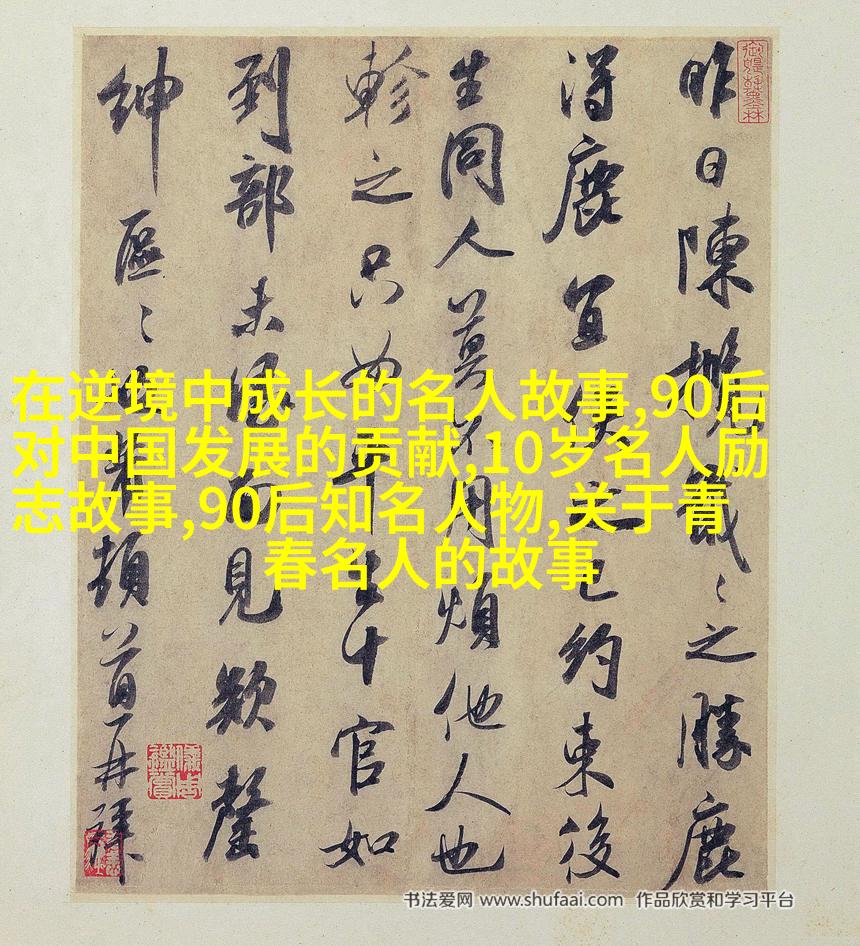 昨日陳之勝鹿
得鹿宜俟之已約束後
生同人莫不用煩他人也
軫之只如十官如
到部未見欵罄
紳區〻頓首再拜
在逆境中成长的名人故事,90后
对中国发展的贡献,10岁名人励
志故事,90后知名人物,关于青
春名人的故事
书法爱网 www.shufaai.com 作品欣赏和学习平台